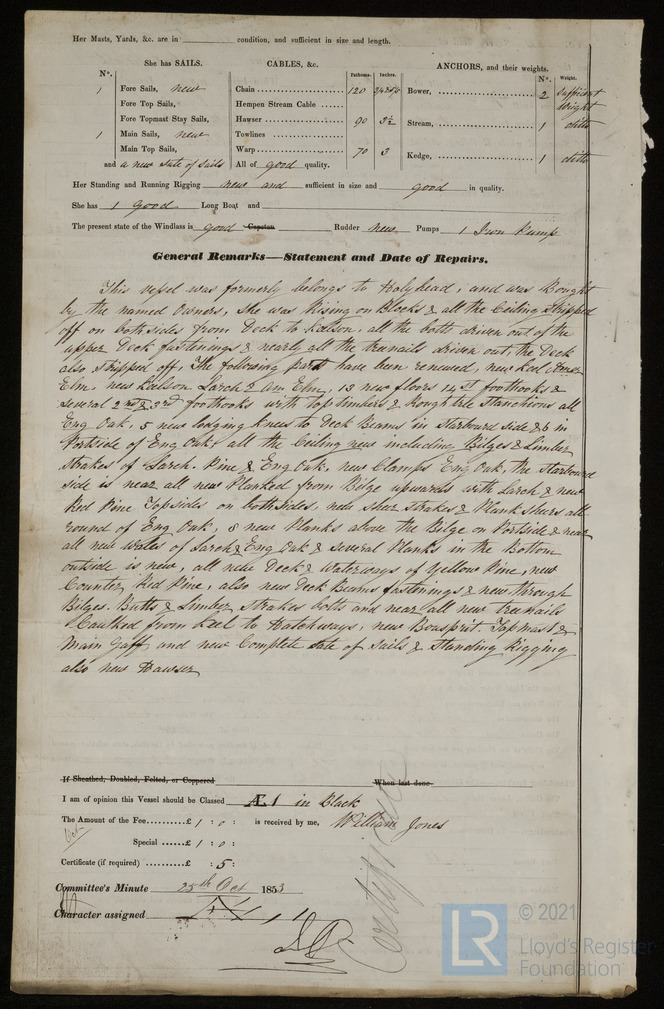 Her Masts, Yards, &c. are in ______ condition, and sufficient in size and length.
She has SAILS.
N°.
1 Fore Sails, new
Fore Top Sails,
Fore Topmast Stay Sails,
1 Main Sails, new
Main Top Sails,
and a new sute of sails
CABLES, &c. Fathoms. Inches.
Chain 120
Hempen Stream Cable
Hawser 90 3½
Towlines
Warp 70 3
All of good quality.
ANCHORS, and their weights. N°. Weight.
Bower, 2 sufficient weight
Stream, 1 ditto
Kedge, 1 ditto
Her Standing and Running Rigging new and sufficient in size and good in quality.
She has 1 good Long Boat and
The present state of the Windlass is good Capstan Rudder new Pumps 1 Iron Pump
General Remarks—Statement and Date of Repairs.
This vesel was formerly belongs to Holyhead, and was Bought
by the named Owners, She was Rising on Blocks & all the Ceiling Stripped
off on both sides from Deck to Kelson, all the bolts driven out of the
upper Deck fastenings & nearly all the trunails driven out, the Deck
also stripped off, The following parts have been renewed, new keel Amer
Elm, new Keelson Larch & Am Elm, 13 new floors 14 1st foothooks &
several 2nd & 3rd foothooks with top timbers & Roughtree Stanchions all
Eng Oak, 5 new lodging knees to Deck Beams in Starbourd side & 6 in
Portside of Eng Oak, all the Ceiling new including Bilges & Limber
strakes of Larch. Pine & Eng Oak. new Clamps Eng Oak, the Starbourd
side is near all new Planked from Bilge upwards with Larch & new
Red Pine Topsides on both sides, new sheer strakes & Plank sheers all
round of Eng Oak, 8 new Planks above the Bilge on Portside & near
all new Wales of Larch & Eng Oak & several Planks in the Bottom
outside is new, all new Deck & Waterways of Yellow Pine, new
Counter Red Pine, also new Deck Beams fastenings & new through
Bilges. Butts & Limber strakes bolts and near all new treenails
Caulked from keel to Hatchways, new Bousprit. Topmast &
Main Gaff and new Complete sute of Sails & Standing Rigging
also new Hawser
If Sheathed, Doubled, Felted, or Coppered When last done
I am of opinion this Vessel should be Classed A.1 in Black
The Amount of the Fee £ 1 : 0 : is received by me, William Jones
Special £ 1 : 0 :
Certificate (if required) £ : 5 :
Committee's Minute 25th Oct 1853
Character assigned
Certificate
LR
© 2021
Lloyd's Register
Foundation